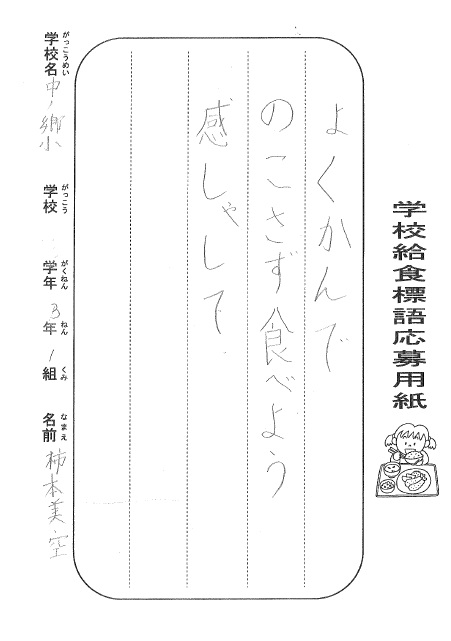 学校給食標語応募用紙
よくかんで
のこさず食べよう
感しゃして
学校名 がっこうめい 中ノ郷小 学校 がっこう 学年 がくねん 3年 ねん 1組 くみ 名前 なまえ 柿本美空